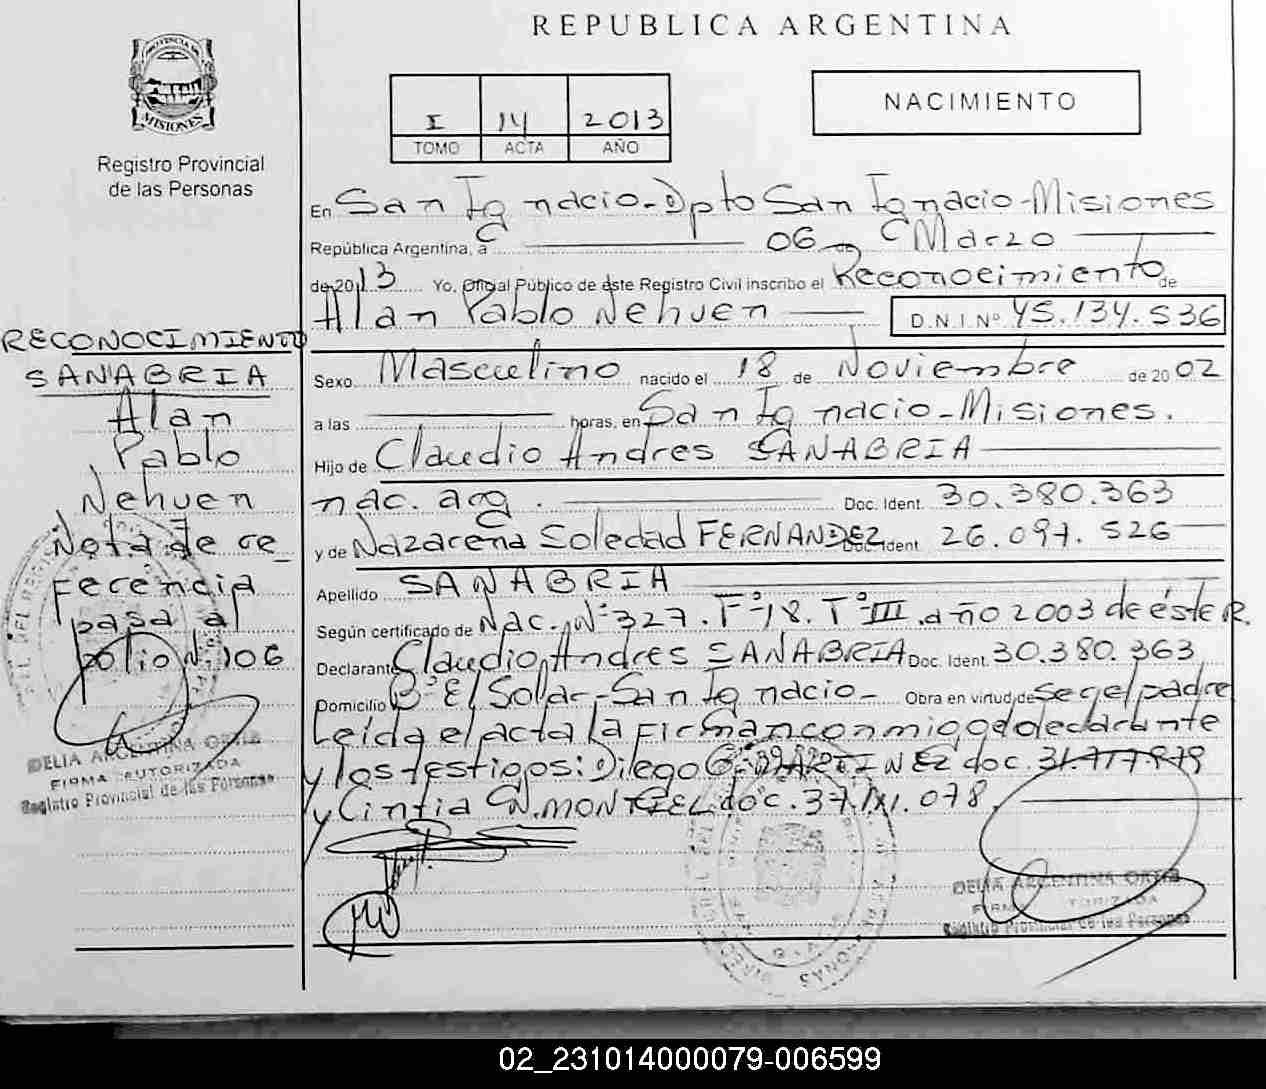 REPUBLICA ARGENTINA
PROVINCIA DE
MISIONES
Registro Provincial
de las Personas
I 14 2013
TOMO ACTA AÑO
NACIMIENTO
En San Ignacio-Dpto San Ignacio-Misiones
República Argentina, a 06 de Marzo
de 2013 Yo, Oficial Público de este Registro Civil inscribo el Reconocimiento de
Alan Pablo Nehuen D.N.I. Nº 45.134.536
Sexo Masculino nacido el 18 de Noviembre de 2002
a las horas, en San Ignacio-Misiones.
Hijo de Claudio Andres SANABRIA
nac. arg. Doc. Ident. 30.380.363
y de Nazarena Soledad FERNANDEZ Doc. Ident 26.097.526
Apellido SANABRIA
Según certificado de Nac. Nº 327. Fº 18. Tº III. año 2003 de éste R.
Declarante Claudio Andres SANABRIA Doc. Ident. 30.380.363
Domicilio Bº El Solar-San Ignacio- Obra en virtud de ser el padre
Leída el acta la firman conmigo el declarante
y los testigos: Diego G. MARTINEZ doc. 31.777.979
y Cintia N. MONTIEL doc. 37.
078.
RECONOCIMIENTO
SANABRIA
Alan
Pablo
Nehuen
Nota de re
ferencia
pasa al
folio Nº 106
DELIA ARGENTINA ORTIZ
FIRMA AUTORIZADA
Registro Provincial de las Personas
DELIA ARGENTINA ORTIZ
FIRMA AUTORIZADA
Registro Provincial de las Personas
02_231014000079-006599